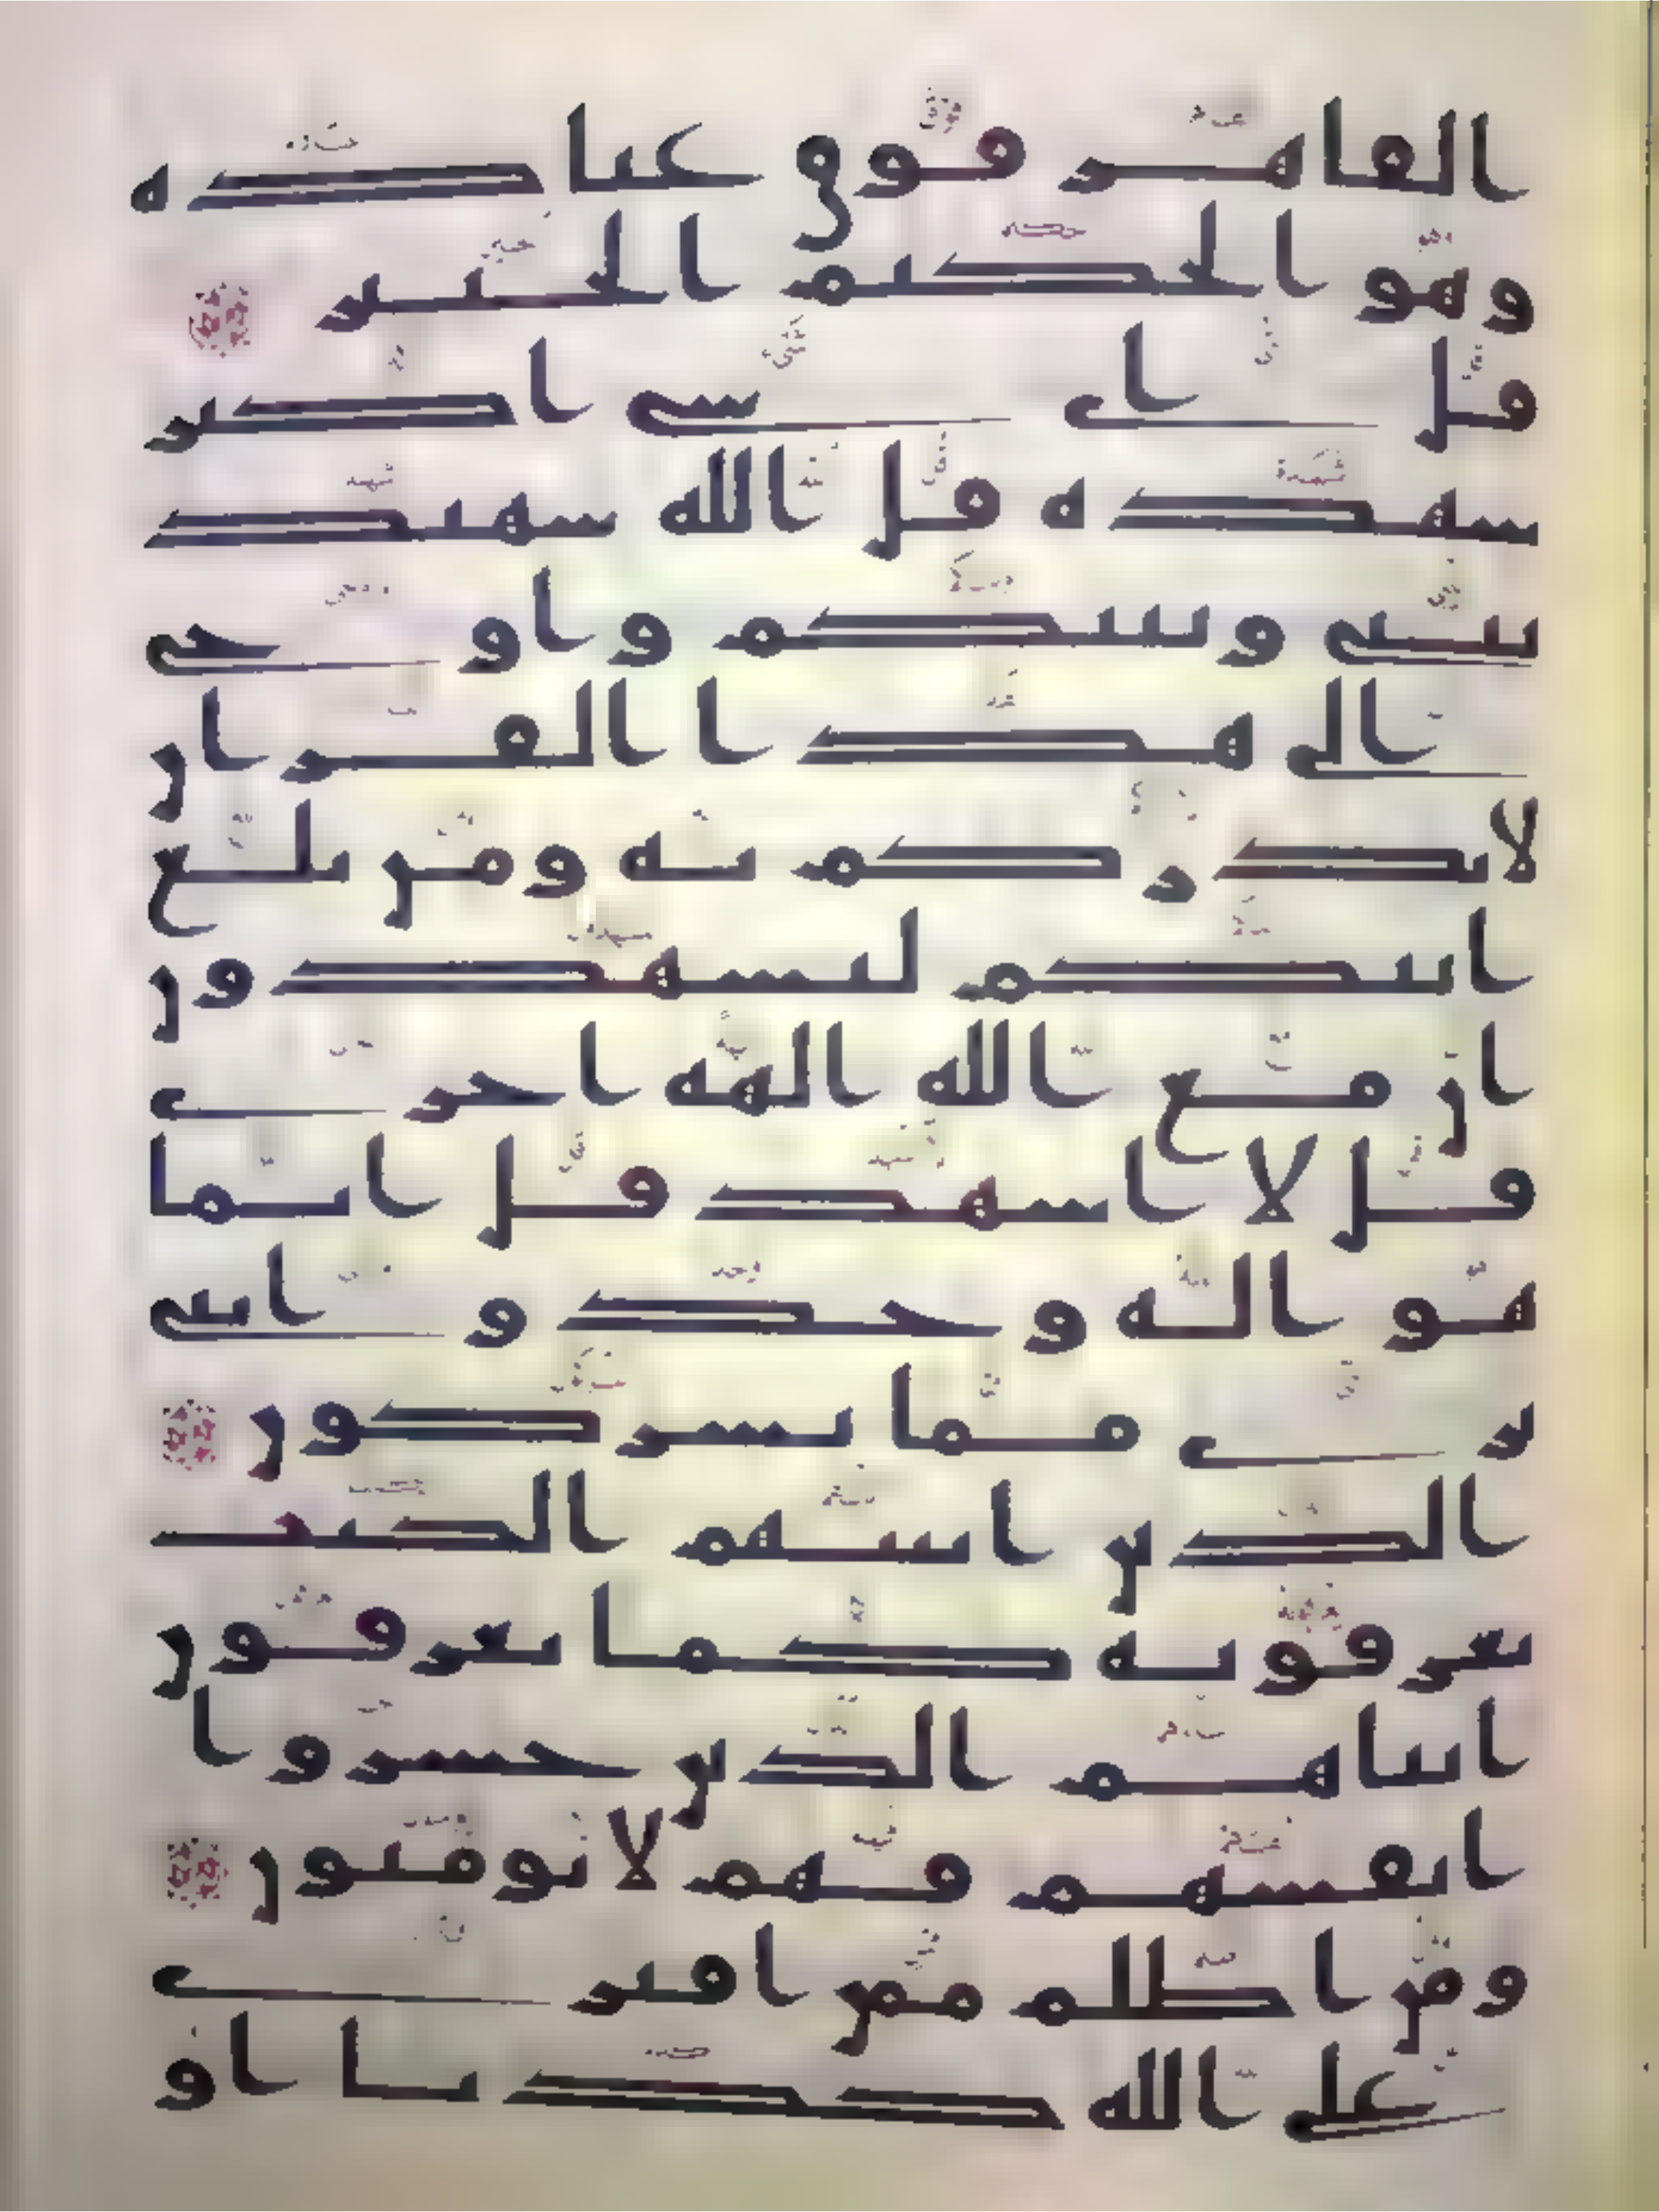 القاهر فوق عباده
وهو الحكيم الخبير
قل اي شي اكبر
شهده قل الله شهيد
بيني وبينكم واوحي
الي هذا القران
لانذركم به ومن بلغ
اينكم لتشهدون
ان مع الله الهه اخري
قل لا اشهد قل انما
هو اله وحد وانني
بري مما تشركون
الذين اتينهم الكتب
يعرفونه كما يعرفون
ابناهم الذين خسروا
انفسهم فهم لا يومنون
ومن اظلم ممن افتري
علي الله كذبا او